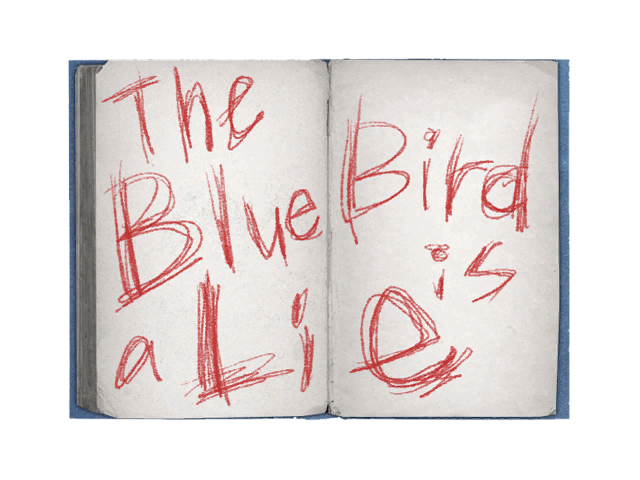 The
Blue Bird
is
a Lie